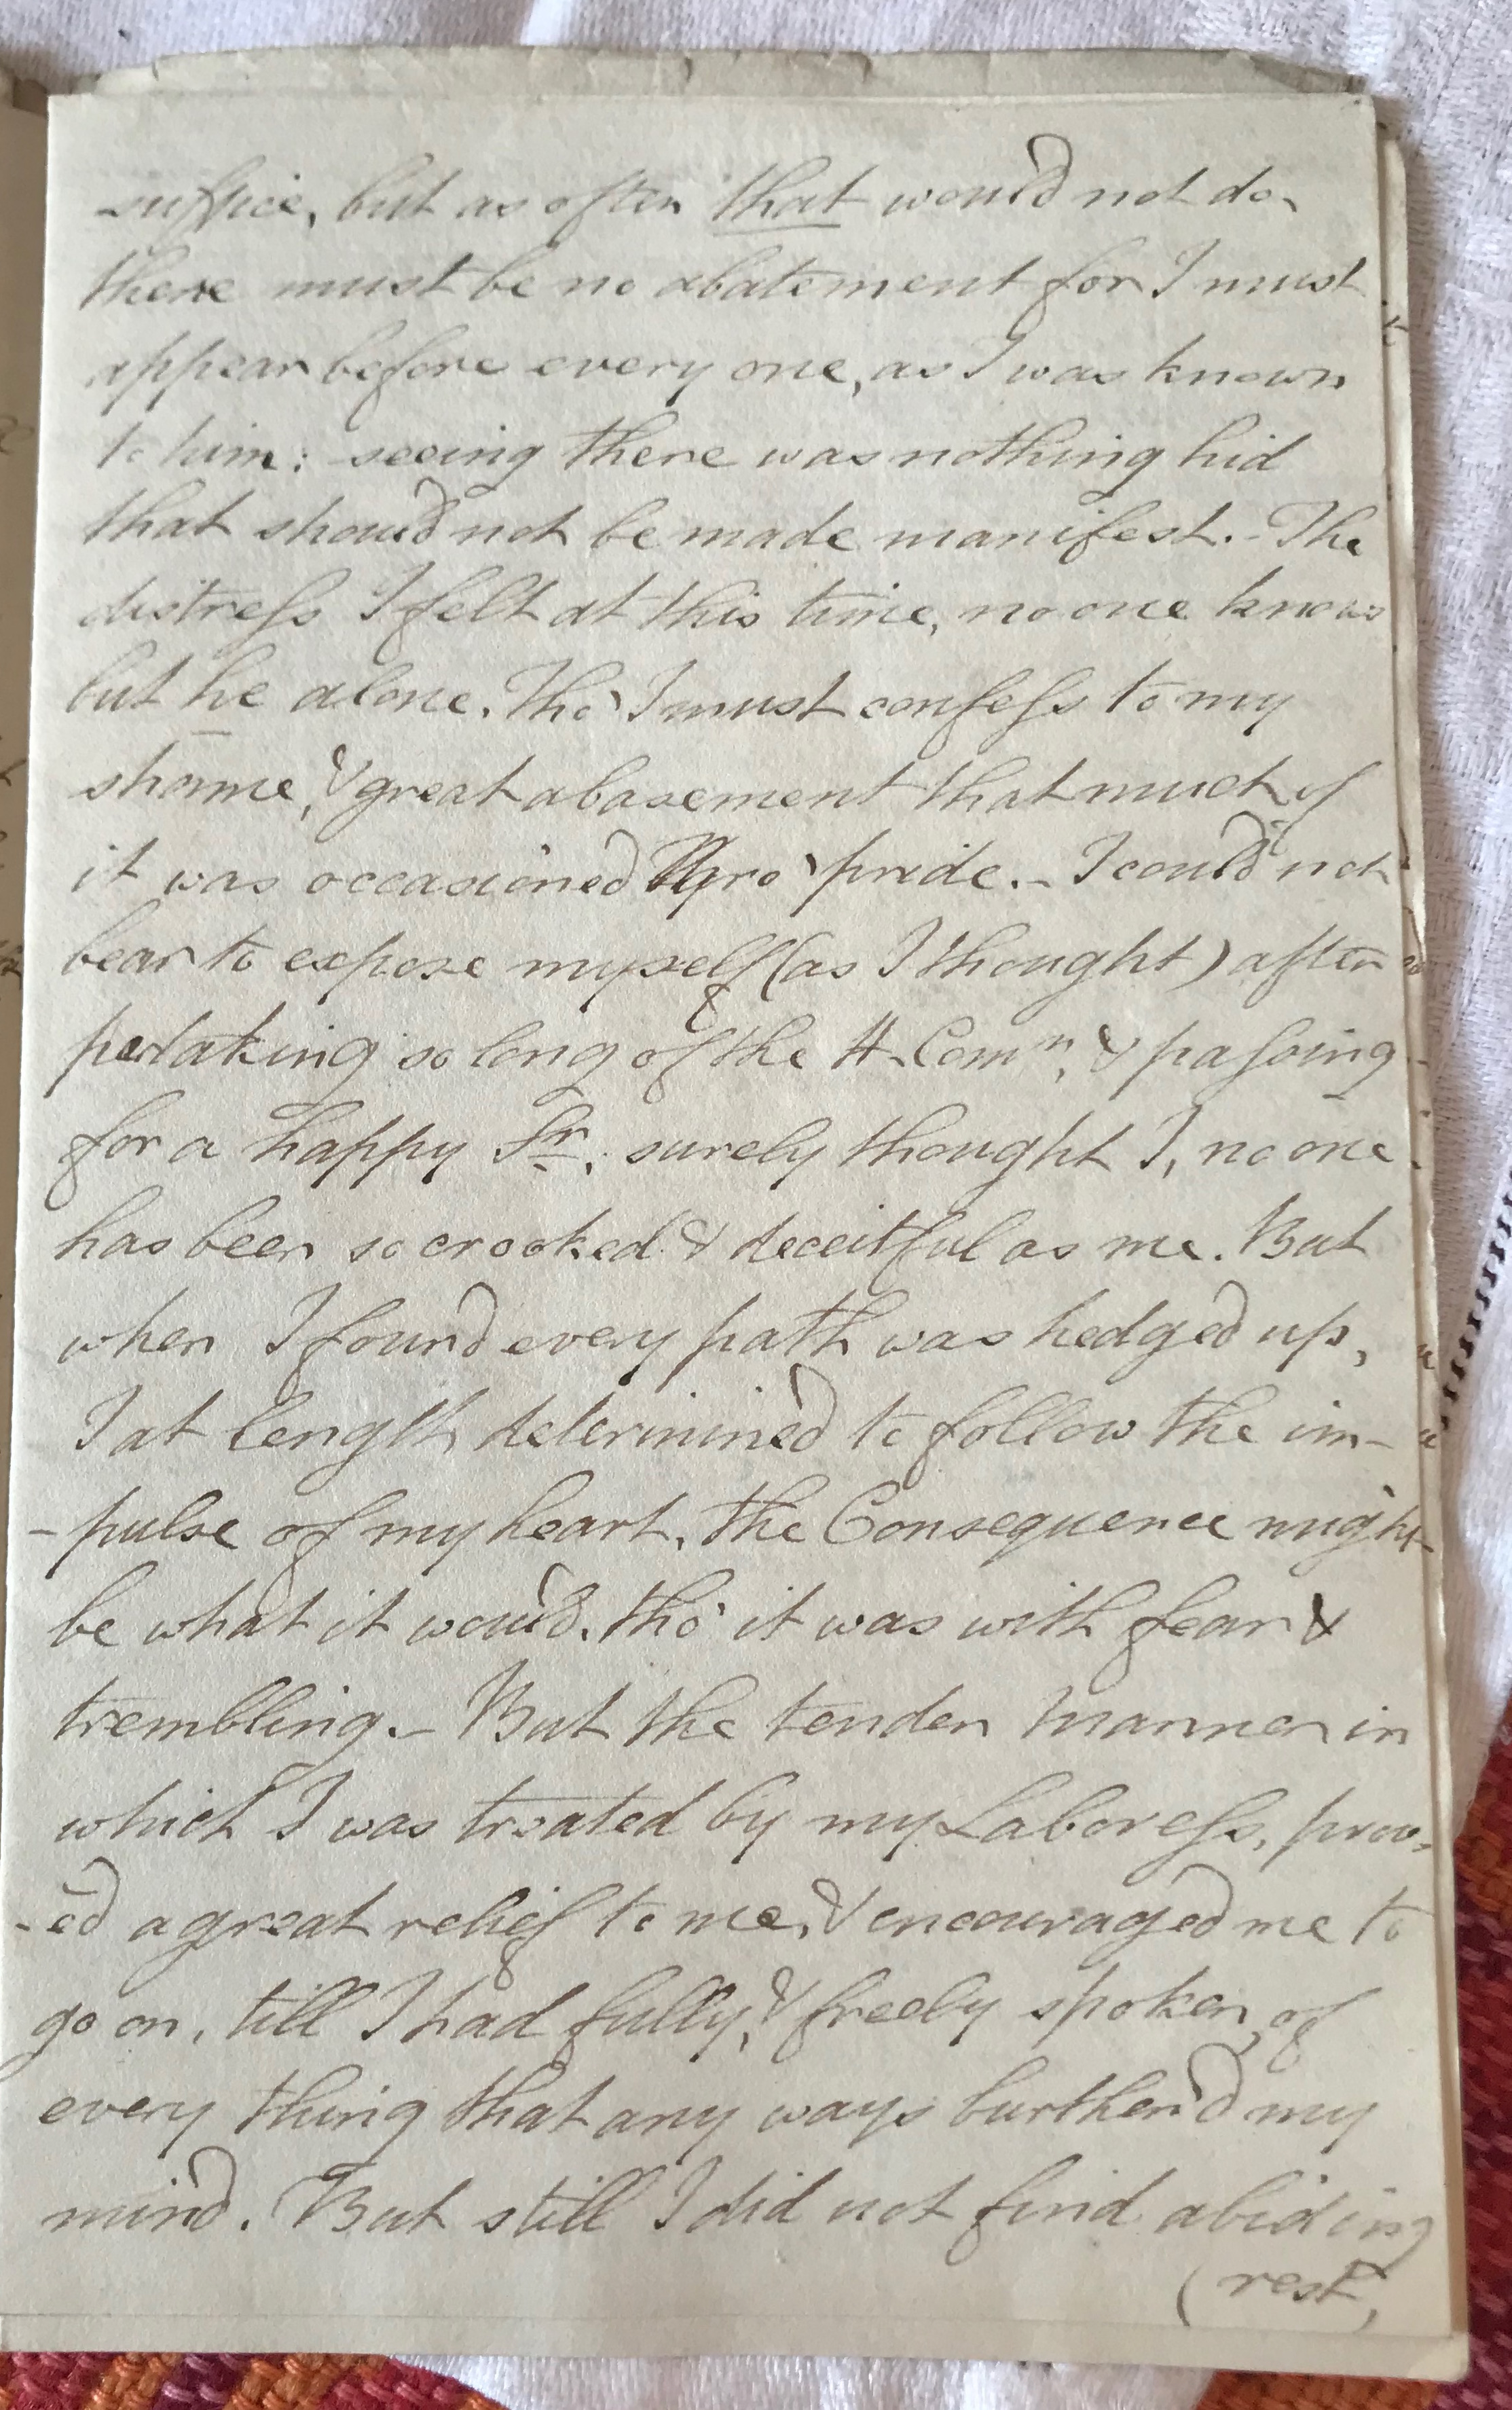 suffice, but as often that would not do,
there must be no abatement for I must
appear before every one, as I was known
to him: seeing there was nothing hid
that should not be made manifest. - The
distress I felt at this time, no one knows
but he alone. Tho' I must confess to my
shame, & great abasement that much of
it was occasioned thro' pride. - I could not
bear to expose myself (as I thought) after
partaking so long of the H. Comn, & passing
for a happy Sr. surely thought I, no one
has been so crooked & deceitful as me. But
when I found every path was hedged up,
I at length determined to follow the im-
-pulse of my heart, the Consequence might
be what it would. tho' it was with fear &
trembling. - But the tender manner in
which I was treated by my Laboress, prov-
-ed a great relief to me, & encouraged me to
go on, till I had fully, & freely spoken, of
every thing that any ways burthen'd my
mind. But still I did not find abiding
(rest,